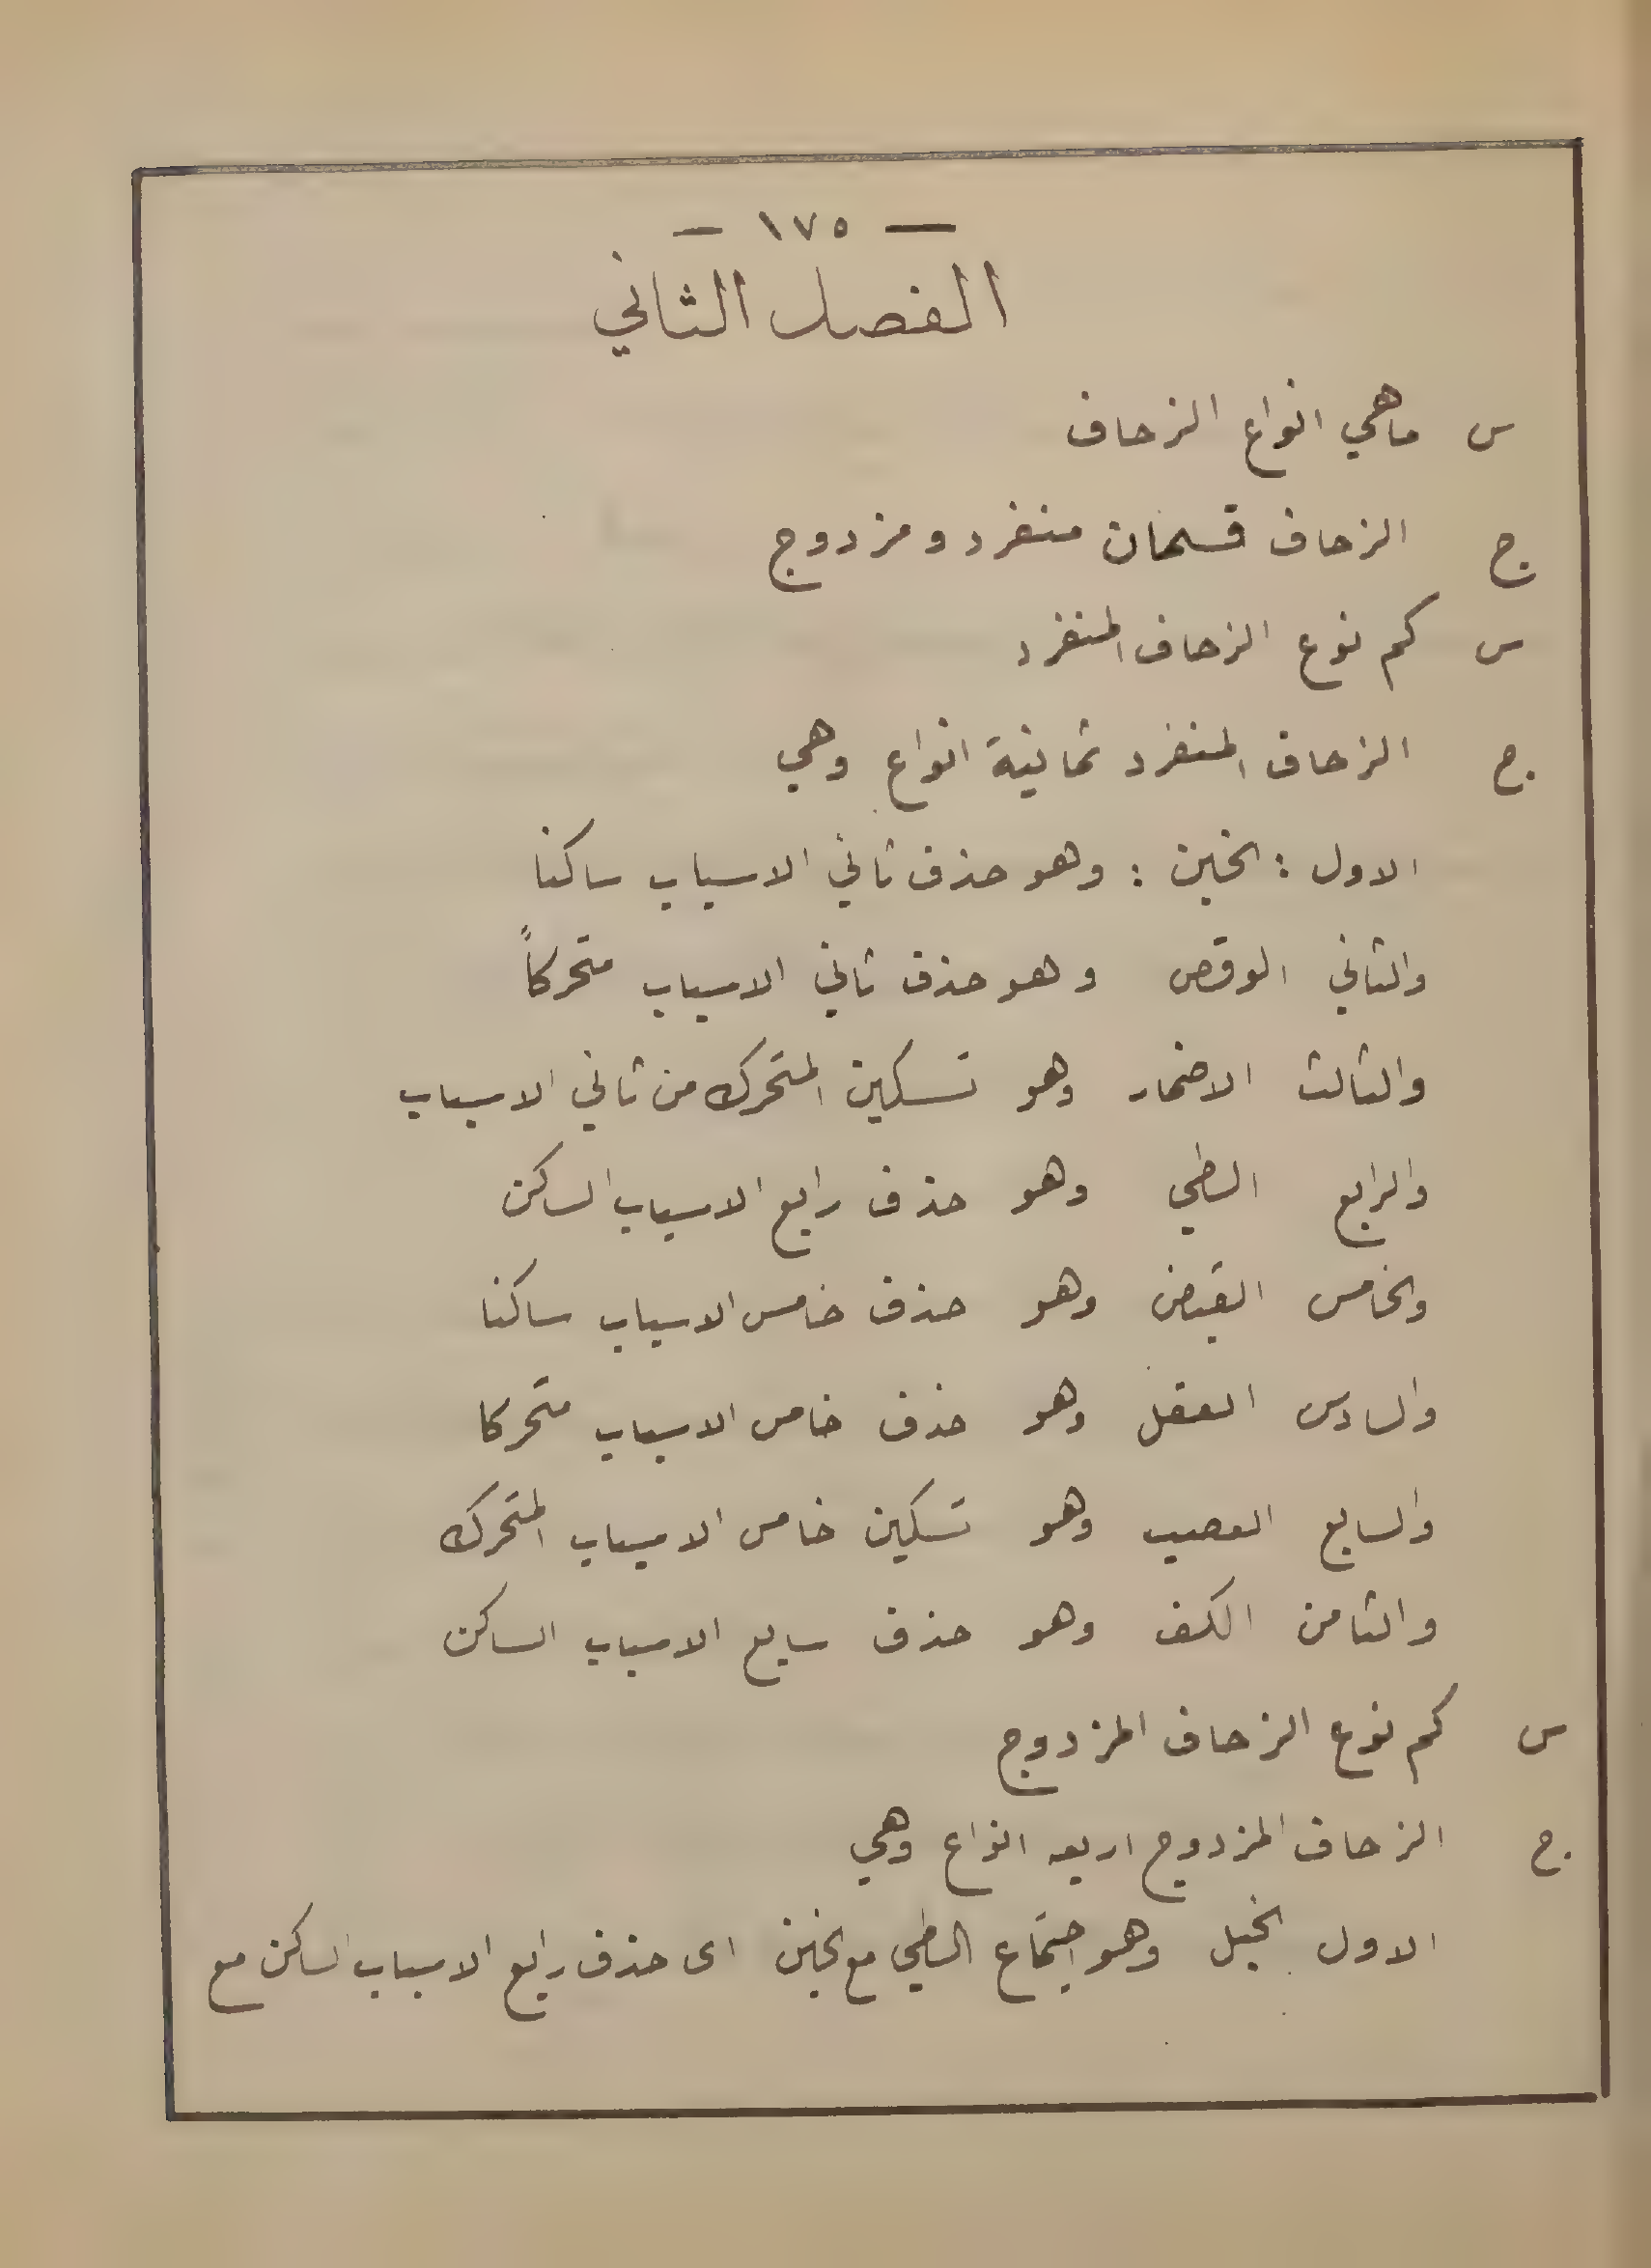 — ١٧٥ —
الفصل الثاني
س ماهي انواع الزحاف
ج الزحاف قسمان منفرد ومزدوج
س كم نوع الزحاف المنفرد
ج الزحاف المنفرد ثمانية انواع وهي
الاول : الخبن : وهو حذف ثاني الاسباب ساكنا
والثاني الوقص وهو حذف ثاني الاسباب متحركاً
والثالث الاضمار وهو تسكين المتحرك من ثاني الاسباب
والرابع الطي وهو حذف رابع الاسباب الساكن
والخامس القبض وهو حذف خامس الاسباب ساكنا
والسادس العقل وهو حذف خامس الاسباب متحركا
والسابع العصب وهو تسكين خامس الاسباب المتحرك
والثامن الكف وهو حذف سابع الاسباب الساكن
س كم نوع الزحاف المزدوج
ج الزحاف المزدوج اربعه انواع وهي
الاول الخبل وهو اجتماع الطي مع الخبن اى حذف رابع الاسباب الساكن مع